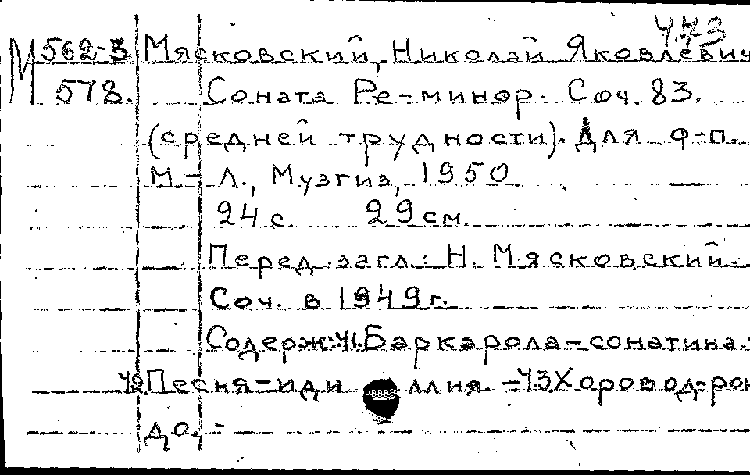 443
М 562-3 Мясковский, Николай Яковлевич
578. Соната Ре-минор. Соч. 83.
(средней трудности). Для ф-п.
М.-Л., Музгиз, 1950
24 с. 29 см.
Перед загл.: Н. Мясковский.
Соч. в 1949 г.
Содерж: Ч1. Баркарола-сонатина.
Ч2 Песня-иди ллия. - Ч3 Хоровод-рон
до.-